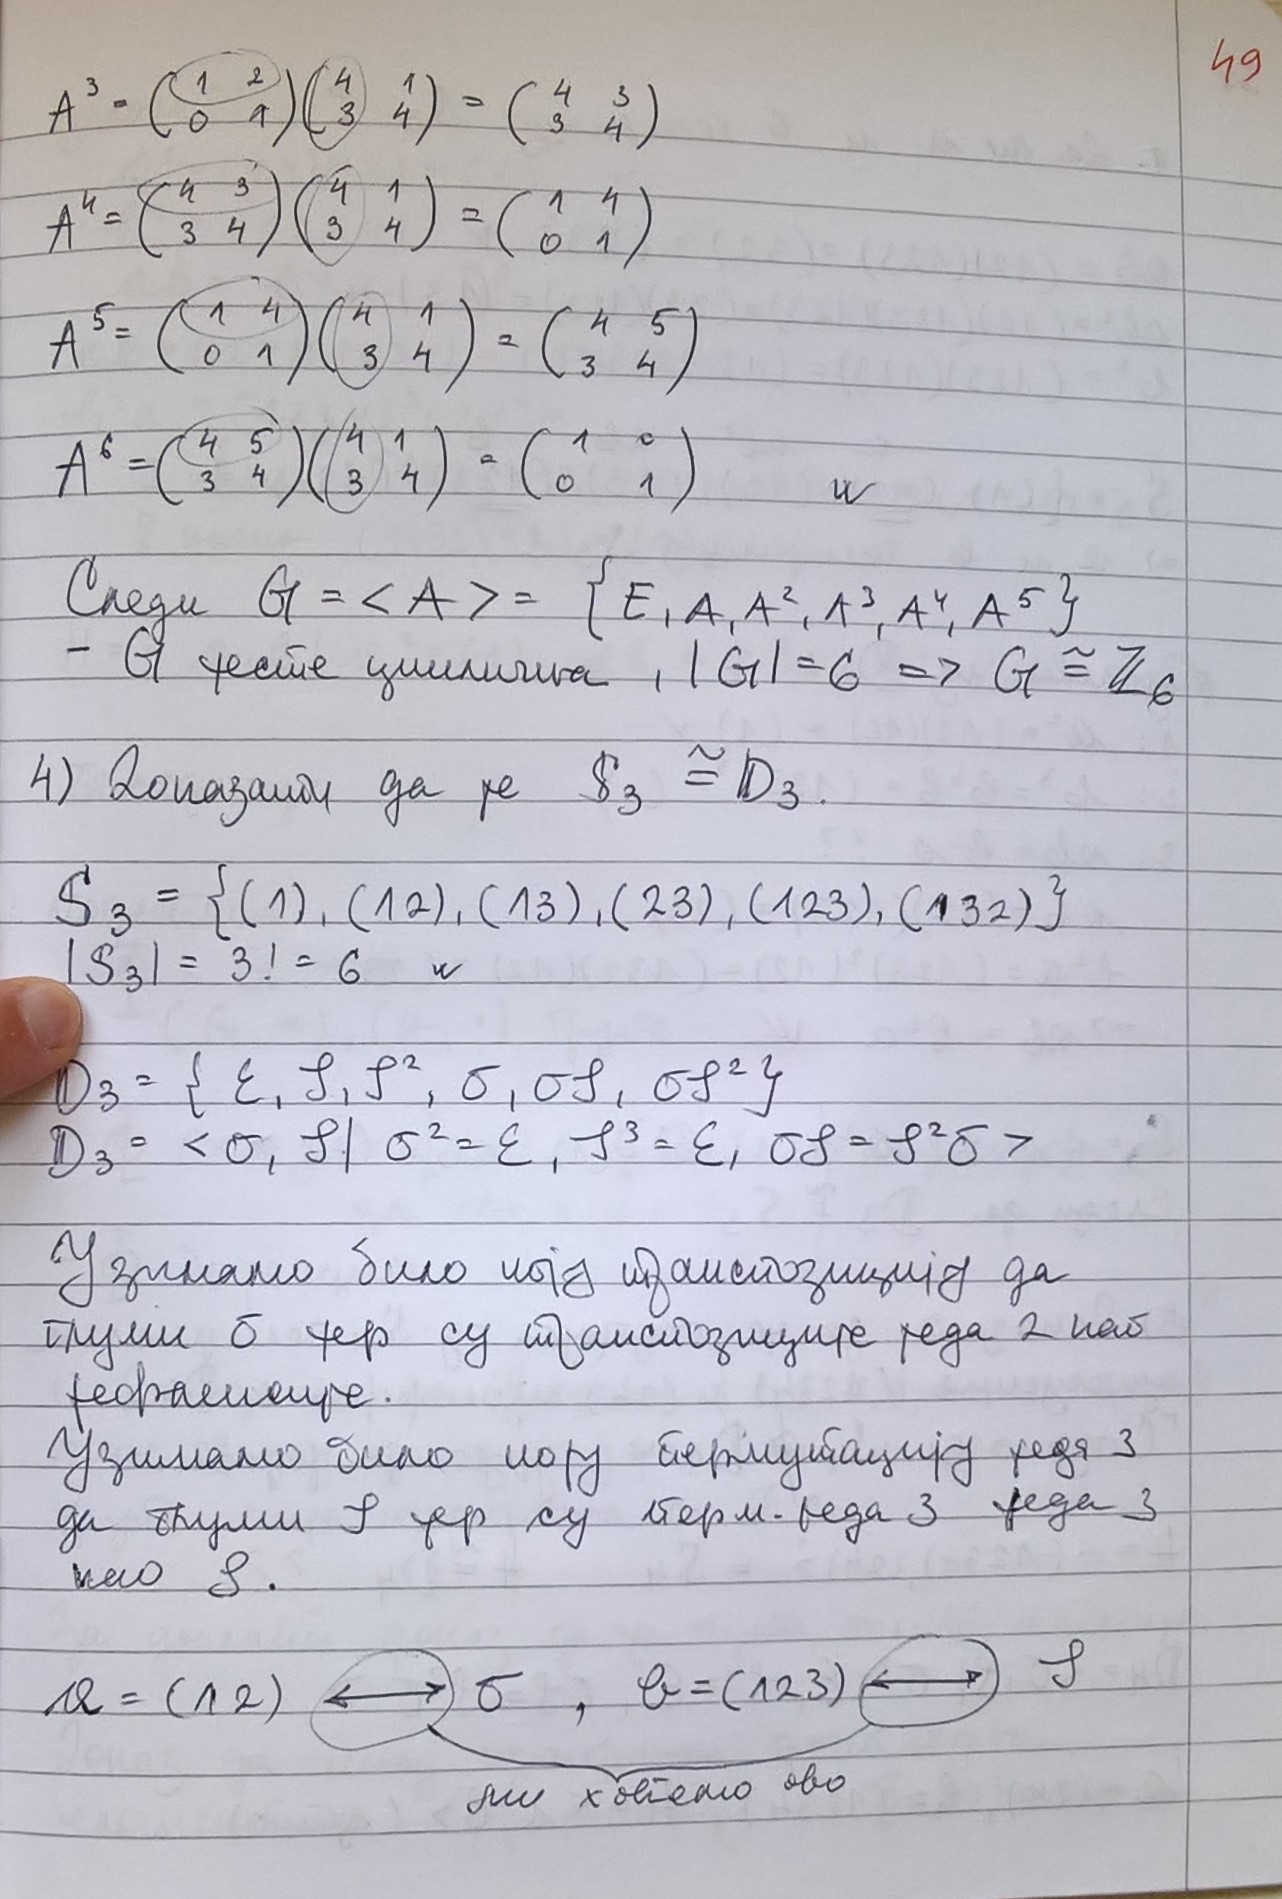 49
A³ = (1 2 0 1)(4 1 3 4) = (4 3 3 4)
A⁴ = (4 3 3 4)(4 1 3 4) = (1 4 0 1)
A⁵ = (1 4 0 1)(4 1 3 4) = (4 5 3 4)
A⁶ = (4 5 3 4)(4 1 3 4) = (1 0 0 1)
Следи G = <A> = {E, A, A², A³, A⁴, A⁵}
- G јесте циклична, |G| = 6 => G ≅ ℤ₆
4) Доказати да је S₃ ≅ D₃.
S₃ = {(1), (12), (13), (23), (123), (132)}
|S₃| = 3! = 6
D₃ = {ε, ρ, ρ², σ, σρ, σρ²}
D₃ = <σ, ρ | σ² = ε, ρ³ = ε, σρ = ρ²σ>
Узимамо било коју транспозицију да
глуми σ јер су транспозиције реда 2 као
рефлексије.
Узимамо било коју пермутацију реда 3
да глуми ρ јер су перм. реда 3 реда 3
као ρ.
a = (12) ⟷ σ, b = (123) ⟷ ρ
ми хоћемо ово